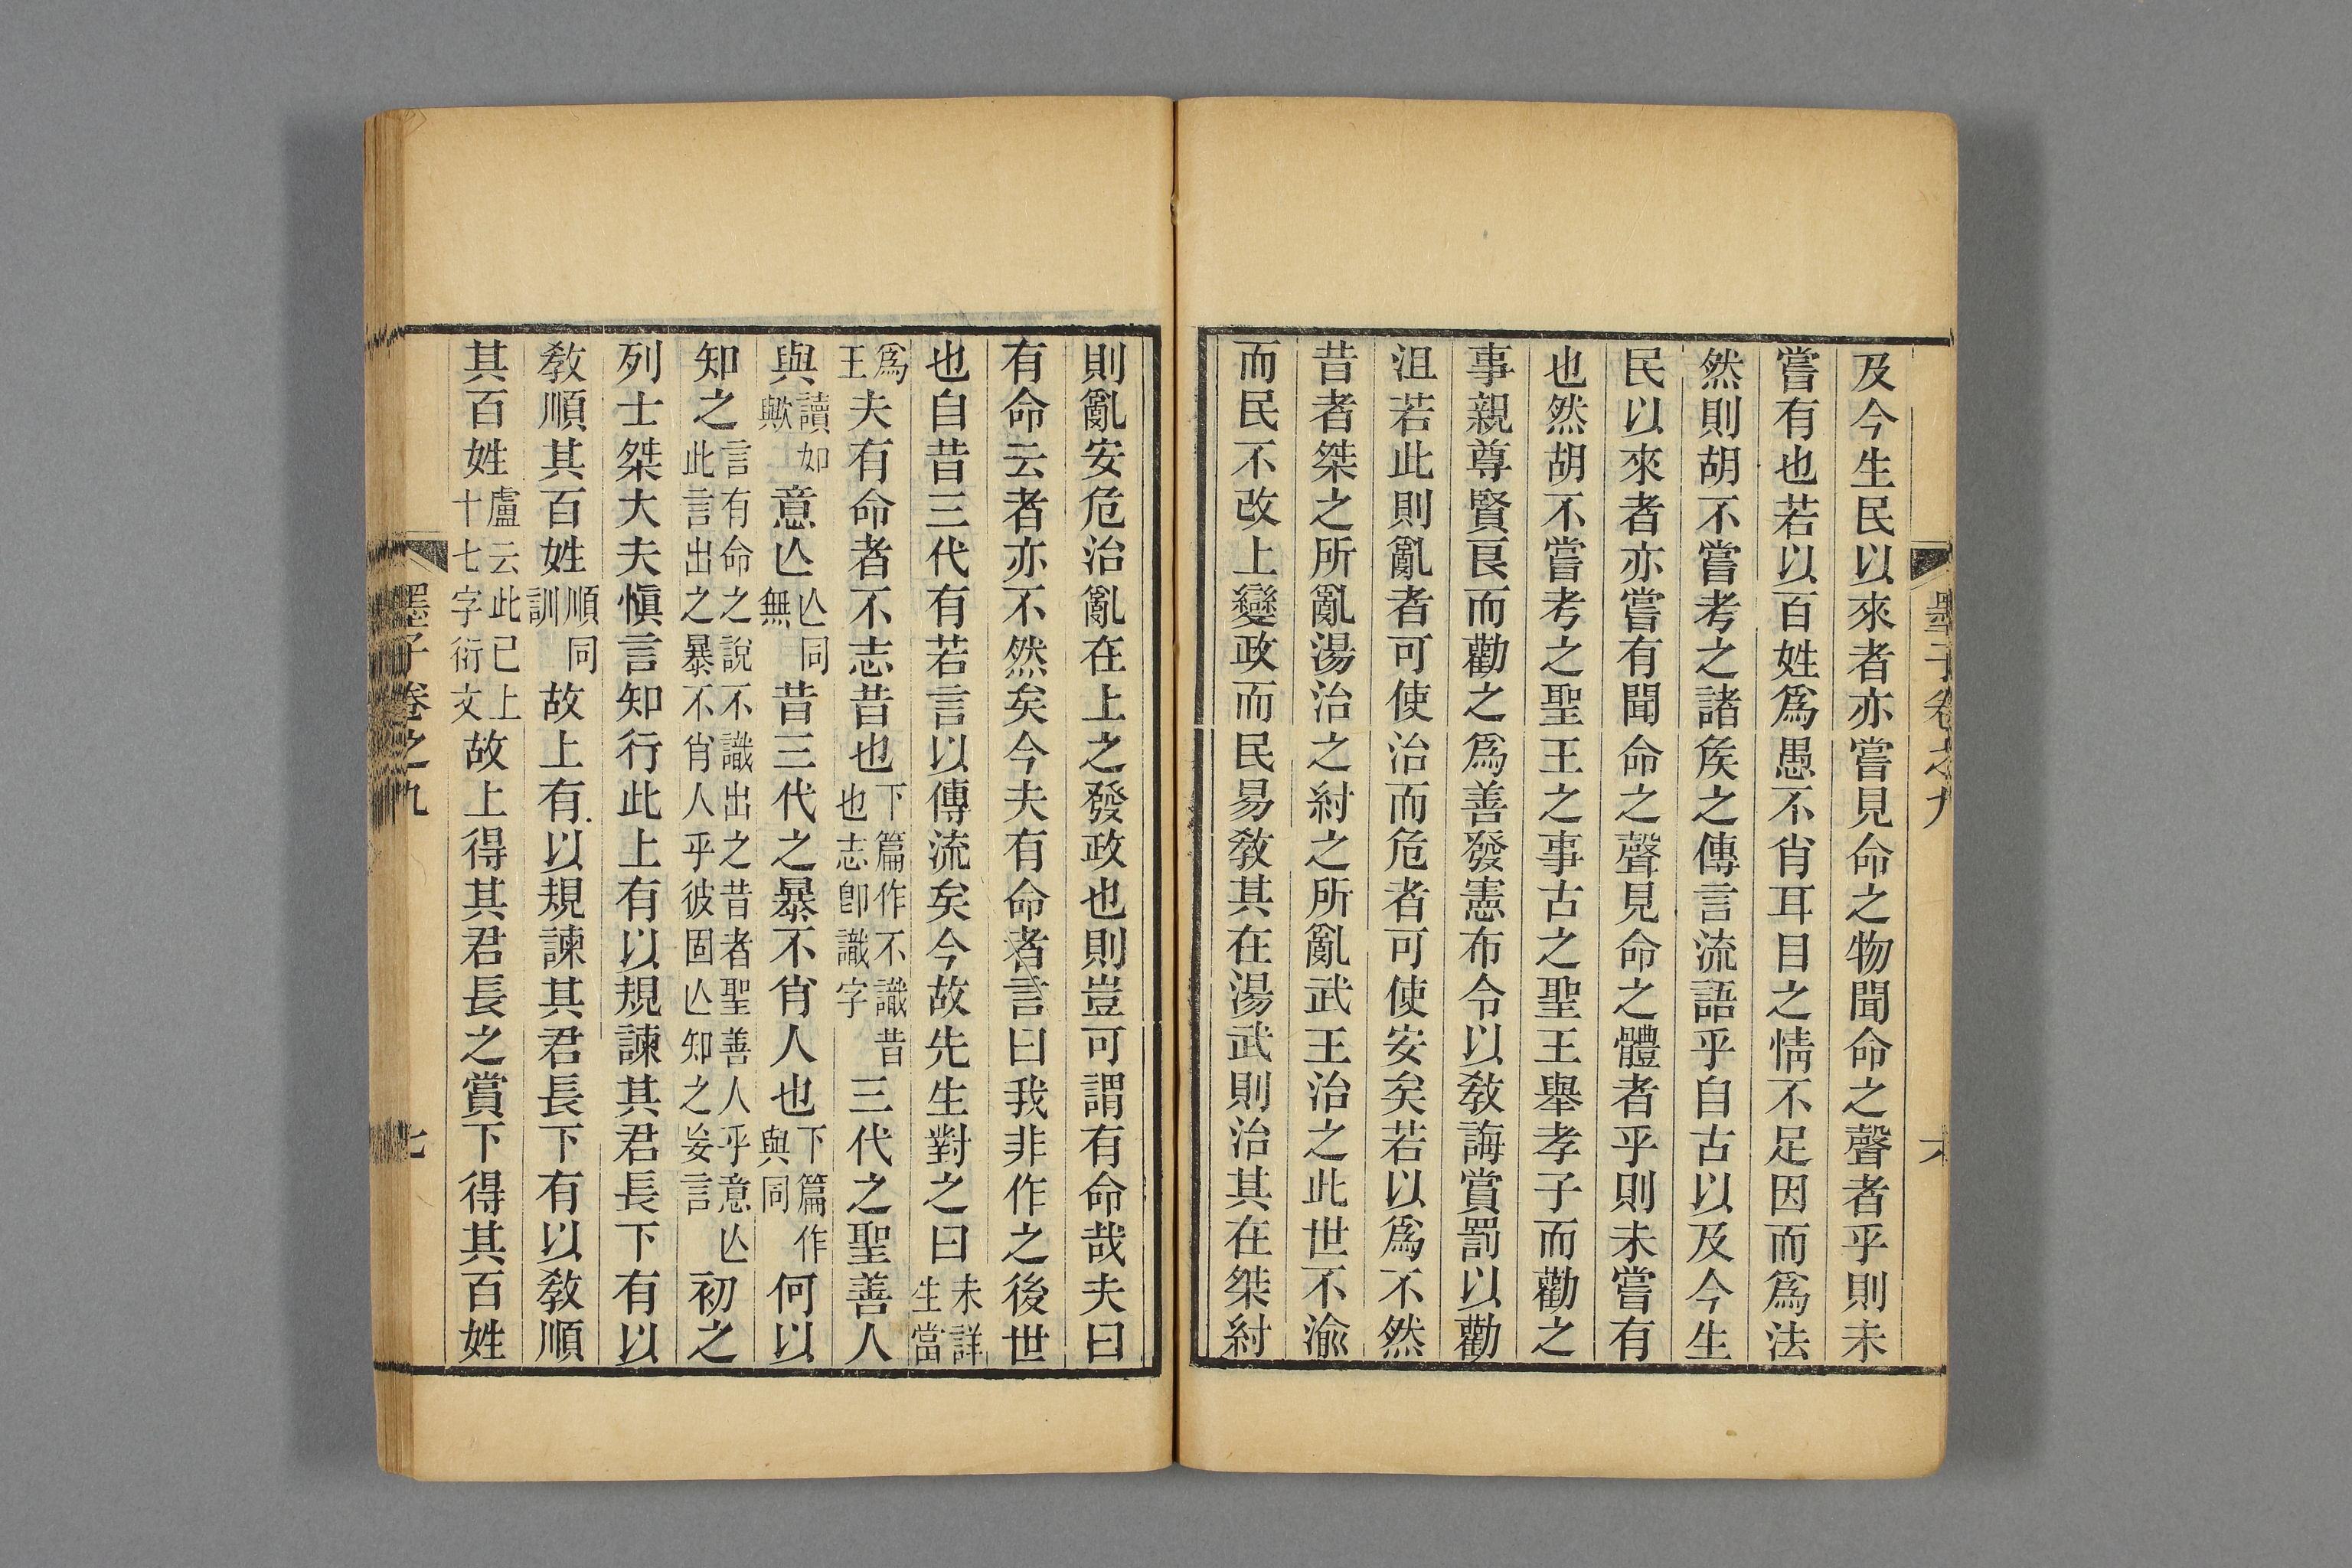 墨子卷之九
六
及今生民以來者亦嘗見命之物聞命之聲者乎則未
嘗有也若以百姓爲愚不肖耳目之情不足因而爲法
然則胡不嘗考之諸矦之傳言流語乎自古以及今生
民以來者亦嘗有聞命之聲見命之體者乎則未嘗有
也然胡不嘗考之聖王之事古之聖王舉孝子而勸之
事親尊賢良而勸之爲善發憲布令以敎誨賞罰以勸
沮若此則亂者可使治而危者可使安矣若以爲不然
昔者桀之所亂湯治之紂之所亂武王治之此世不渝
而民不改上變政而民易敎其在湯武則治其在桀紂
則亂安危治亂在上之發政也則豈可謂有命哉夫曰
有命云者亦不然矣今夫有命者言曰我非作之後世
也自昔三代有若言以傳流矣今故先生對之曰未詳生當
爲王夫有命者不志昔也下篇作不識昔也志卽識字三代之聖善人
與讀如歟意亾亾同無昔三代之暴不肖人也下篇作與同何以
知之言有命之說不識出之昔者聖善人乎意亾此言出之暴不肖人乎彼固亾知之妄言初之
列士桀大夫愼言知行此上有以規諫其君長下有以
敎順其百姓順同訓故上有以規諫其君長下有以敎順
其百姓盧云此已上十七字衍文故上得其君長之賞下得其百姓
墨子卷之九
七